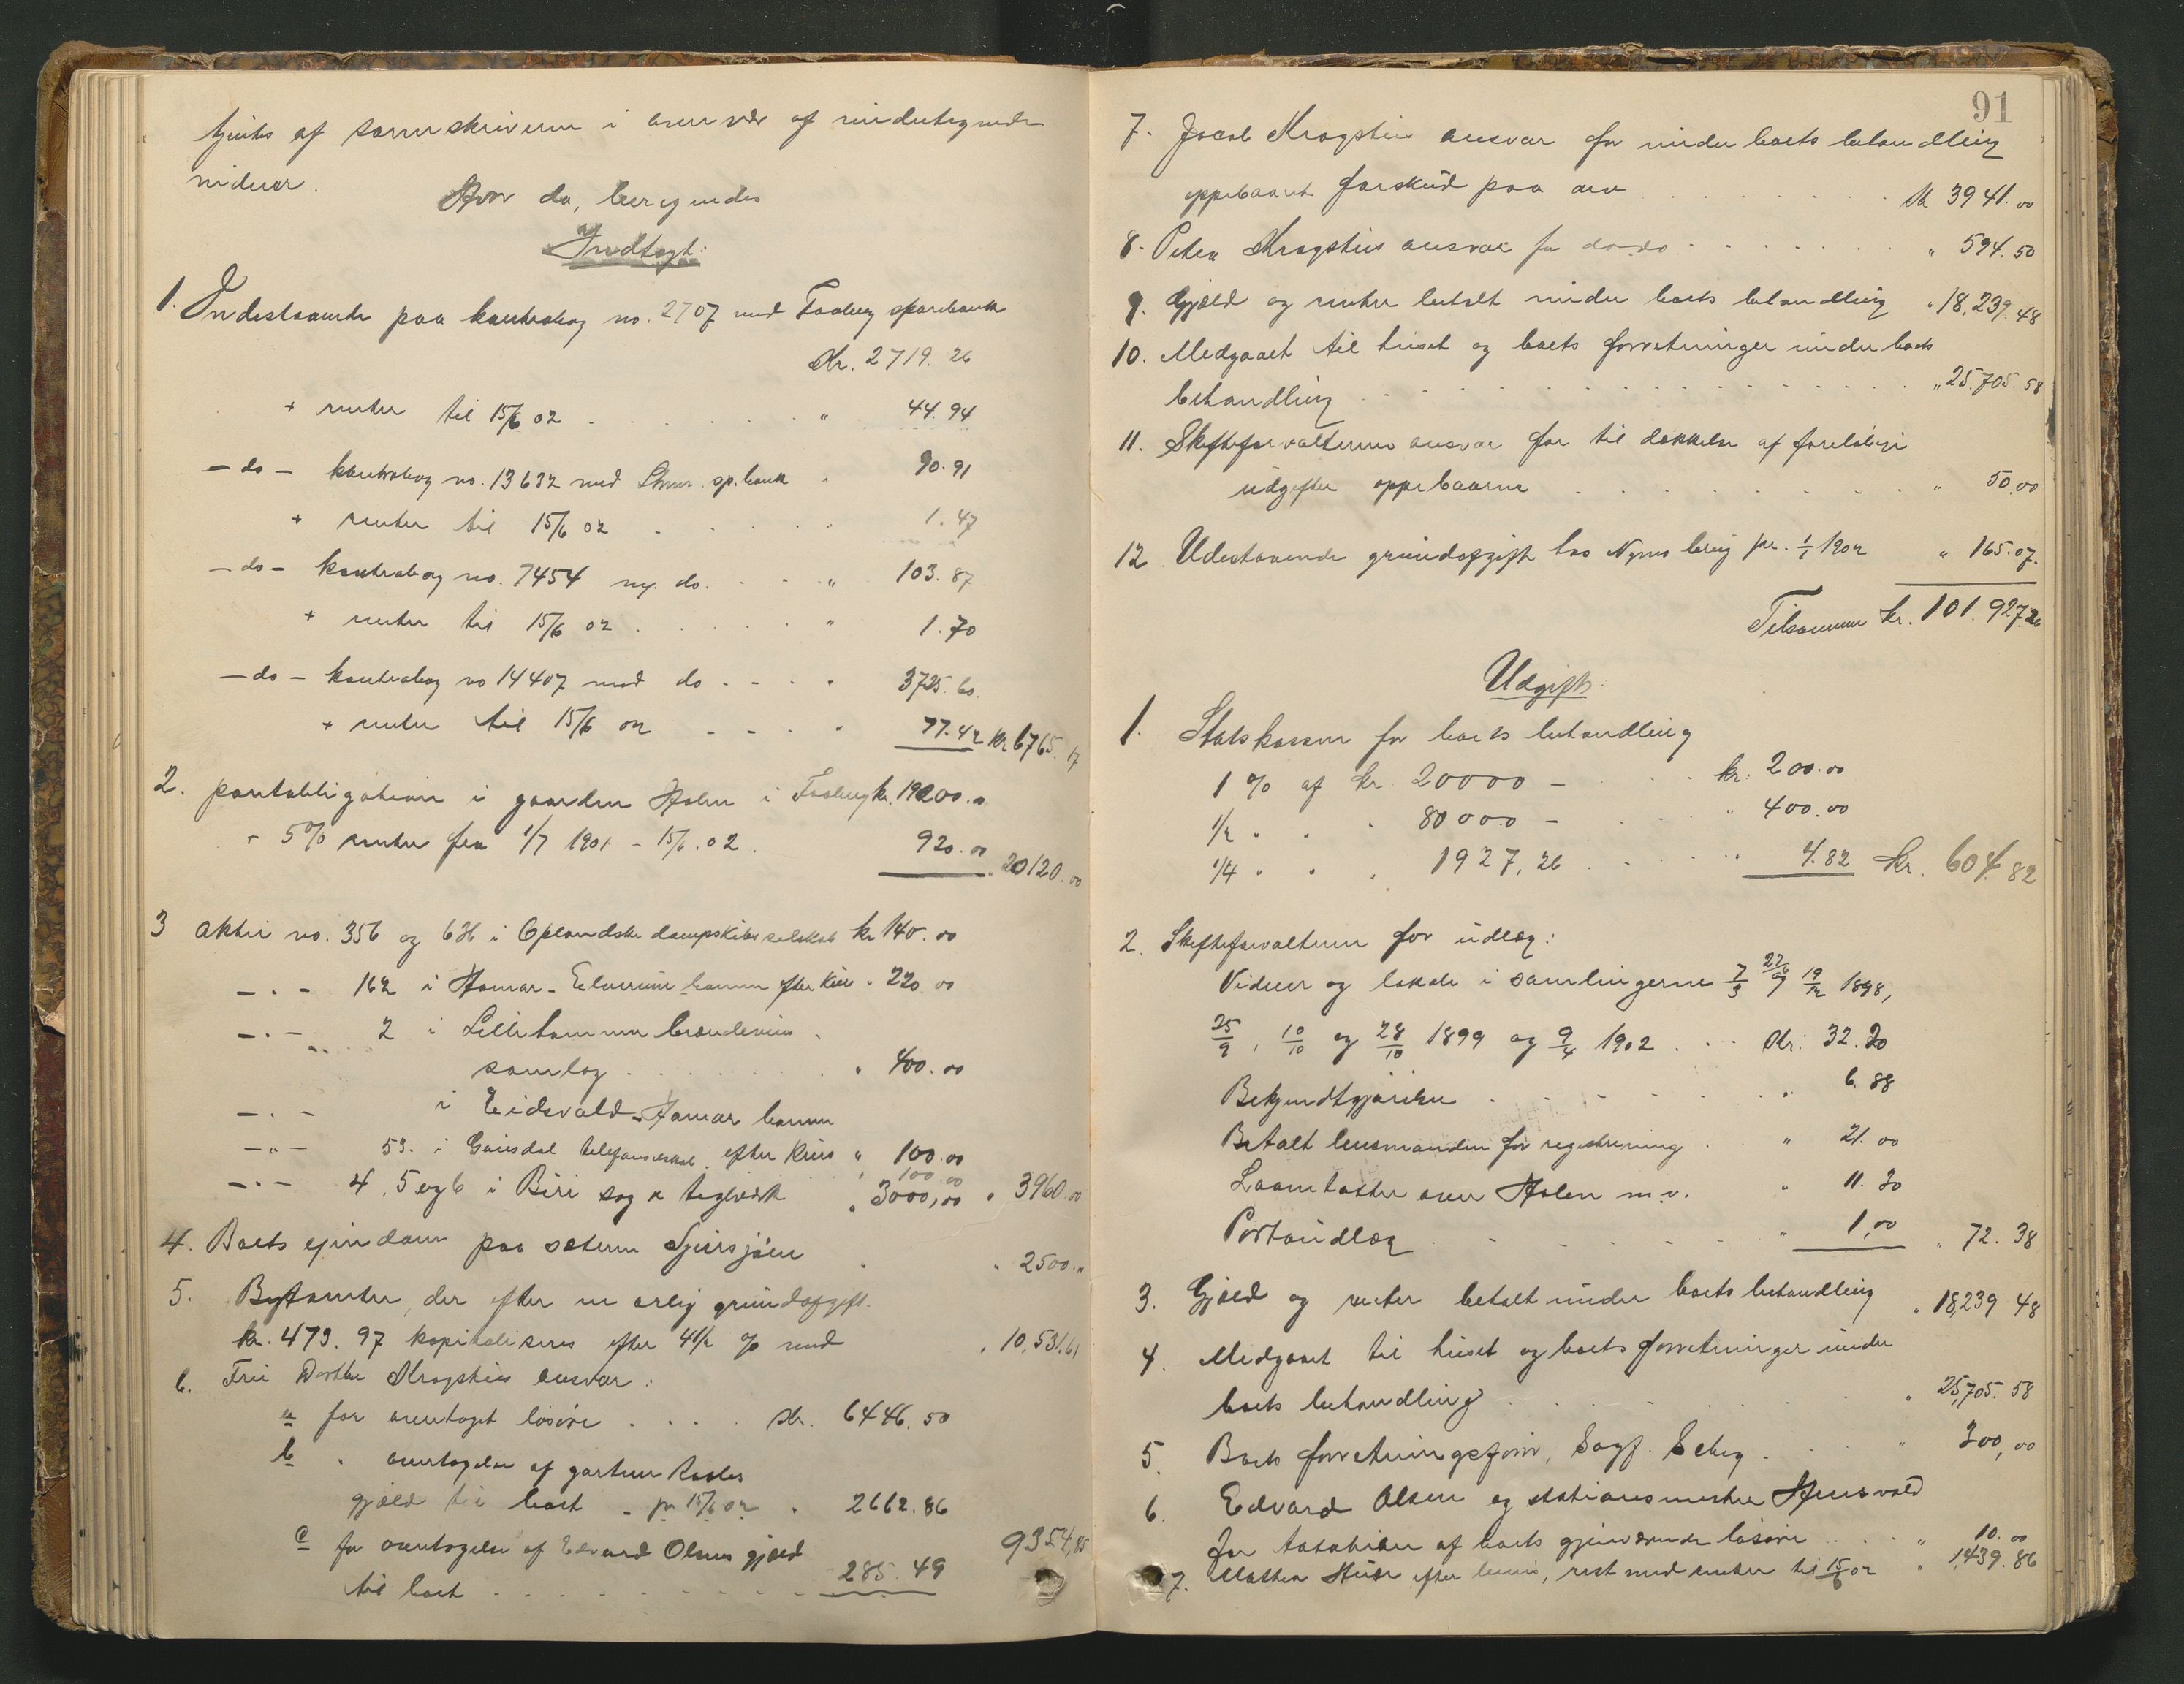 af sorenskriveren i overvær af undertegnede
vidner.
Hvor da, beregnedes
Indtægt:
1. Indestaaende paa kontrabog no. 2707 med Faaberg sparebank
Kr. 2719. 26
+ renter til 15/6 02 . . . " 44.94
- do - kontrabog no. 13632 med Lhmr. sp.bank " 90.91
+ renter til 15/6 02 . . . " 1.47
- do - kontrabog no. 7454 ny. do. . . " 103.87
+ renter til 15/6 02 . . . " 1.70
- do - kontrabog no 14407 med do - - - " 3725.60.
+ renter til 15/6 02 - - - " 77.42 kr 6765.17
2. pantobligation i gaarden Holen i Faaberg kr. 19200.00
+ 5% renter fra 1/7 1901 - 15/6.02. 920.00 " 20120.00
3 aktie no. 356 og 636 i Oplandske dampskibsselskab kr 140.00
- " - 162 i Hamar-Elverum banen efter kurs " 220 00
- " - 2 i Lillehammer brændevins
samlag . . . " 400.00
- " - i Eidsvold-Hamar banen
100.00
- " - 53. i Gausdal telefonselskab efter kurs " 100.00
- " - 4, 5 og 6 i Biri sag & teglværk " 3000,00 " 3960.00
4. Boets eiendom paa sæteren Sjursjøen " 2500."
5. Bytomter, der efter en årlig grundafgift
kr. 473.97 kapitaliseres efter 4 1/2 % med " 10,531.61
6. Fru Dorthea Krogstius ansvar:
a for overtaget løsøre . . . . Kr. 6446.50
b " overtagelse af gartner
gjæld til boet - pr 15/6 02 " 2662.86
c for overtagelse af Edvard Olsens gjæld 9354,85
til boet - - - - - 285.49
91
7. Jacob Krogstius ansvar for under boets behandling
oppebaaret forskud paa arv . . . Kr 3941.00
8. Peter Krogstius ansvar for do do . . . " 594.50
9. Gjæld og renter betalt under boets behandling " 18,239.48
10. Medgaaet til huset og boets forretninger under boets
behandling . . . " 25.705.58
11. Skifteforvalterens ansvar for til dækkelse af foreløbige
udgifter oppebaarne . . . " 50.00
12. Udestaaende grundafgift hos byg pr. 1/1 1902 " 165.07.
Tilsammen kr. 101.927.26
Udgift.
1. Statskassen for boets behandling
1 % af kr. 20000 - . . kr. 200.00
1/2 " " " 80000 - . . " 400.00
1/4 " " " 1927,26 . . . " 4.82 Kr. 604.82
2. Skifteforvalteren for udlæg:
Vidner og lokale i samlingerne 7/3 27/9 19/12 1898,
25/9, 10/10 og 28/10 1899 og 9/4 1902 . . . Kr. 32.20
Bekjendtgjørelse . . . " 6.88
Betalt lensmanden for registrering . . " 21.00
Laanetakster over Holen m.v. " 11.30
Portoudlæg . . . " 1,00 " 72.38
3. Gjæld og renter betalt under boets behandling " 18,239 48
4. Medgaaet til huset og boets forretninger under
boets behandling . . . " 25,705.58
5. Boets forretningsfører, Sagf. . . . " 300,00
6. Edvard Olsen og stationsmester
for taxation af boets gjenværende løsøre . . . " 10.00
7. Mathea efter bevis, rest med renter til 15/6 02 " 1,439.86